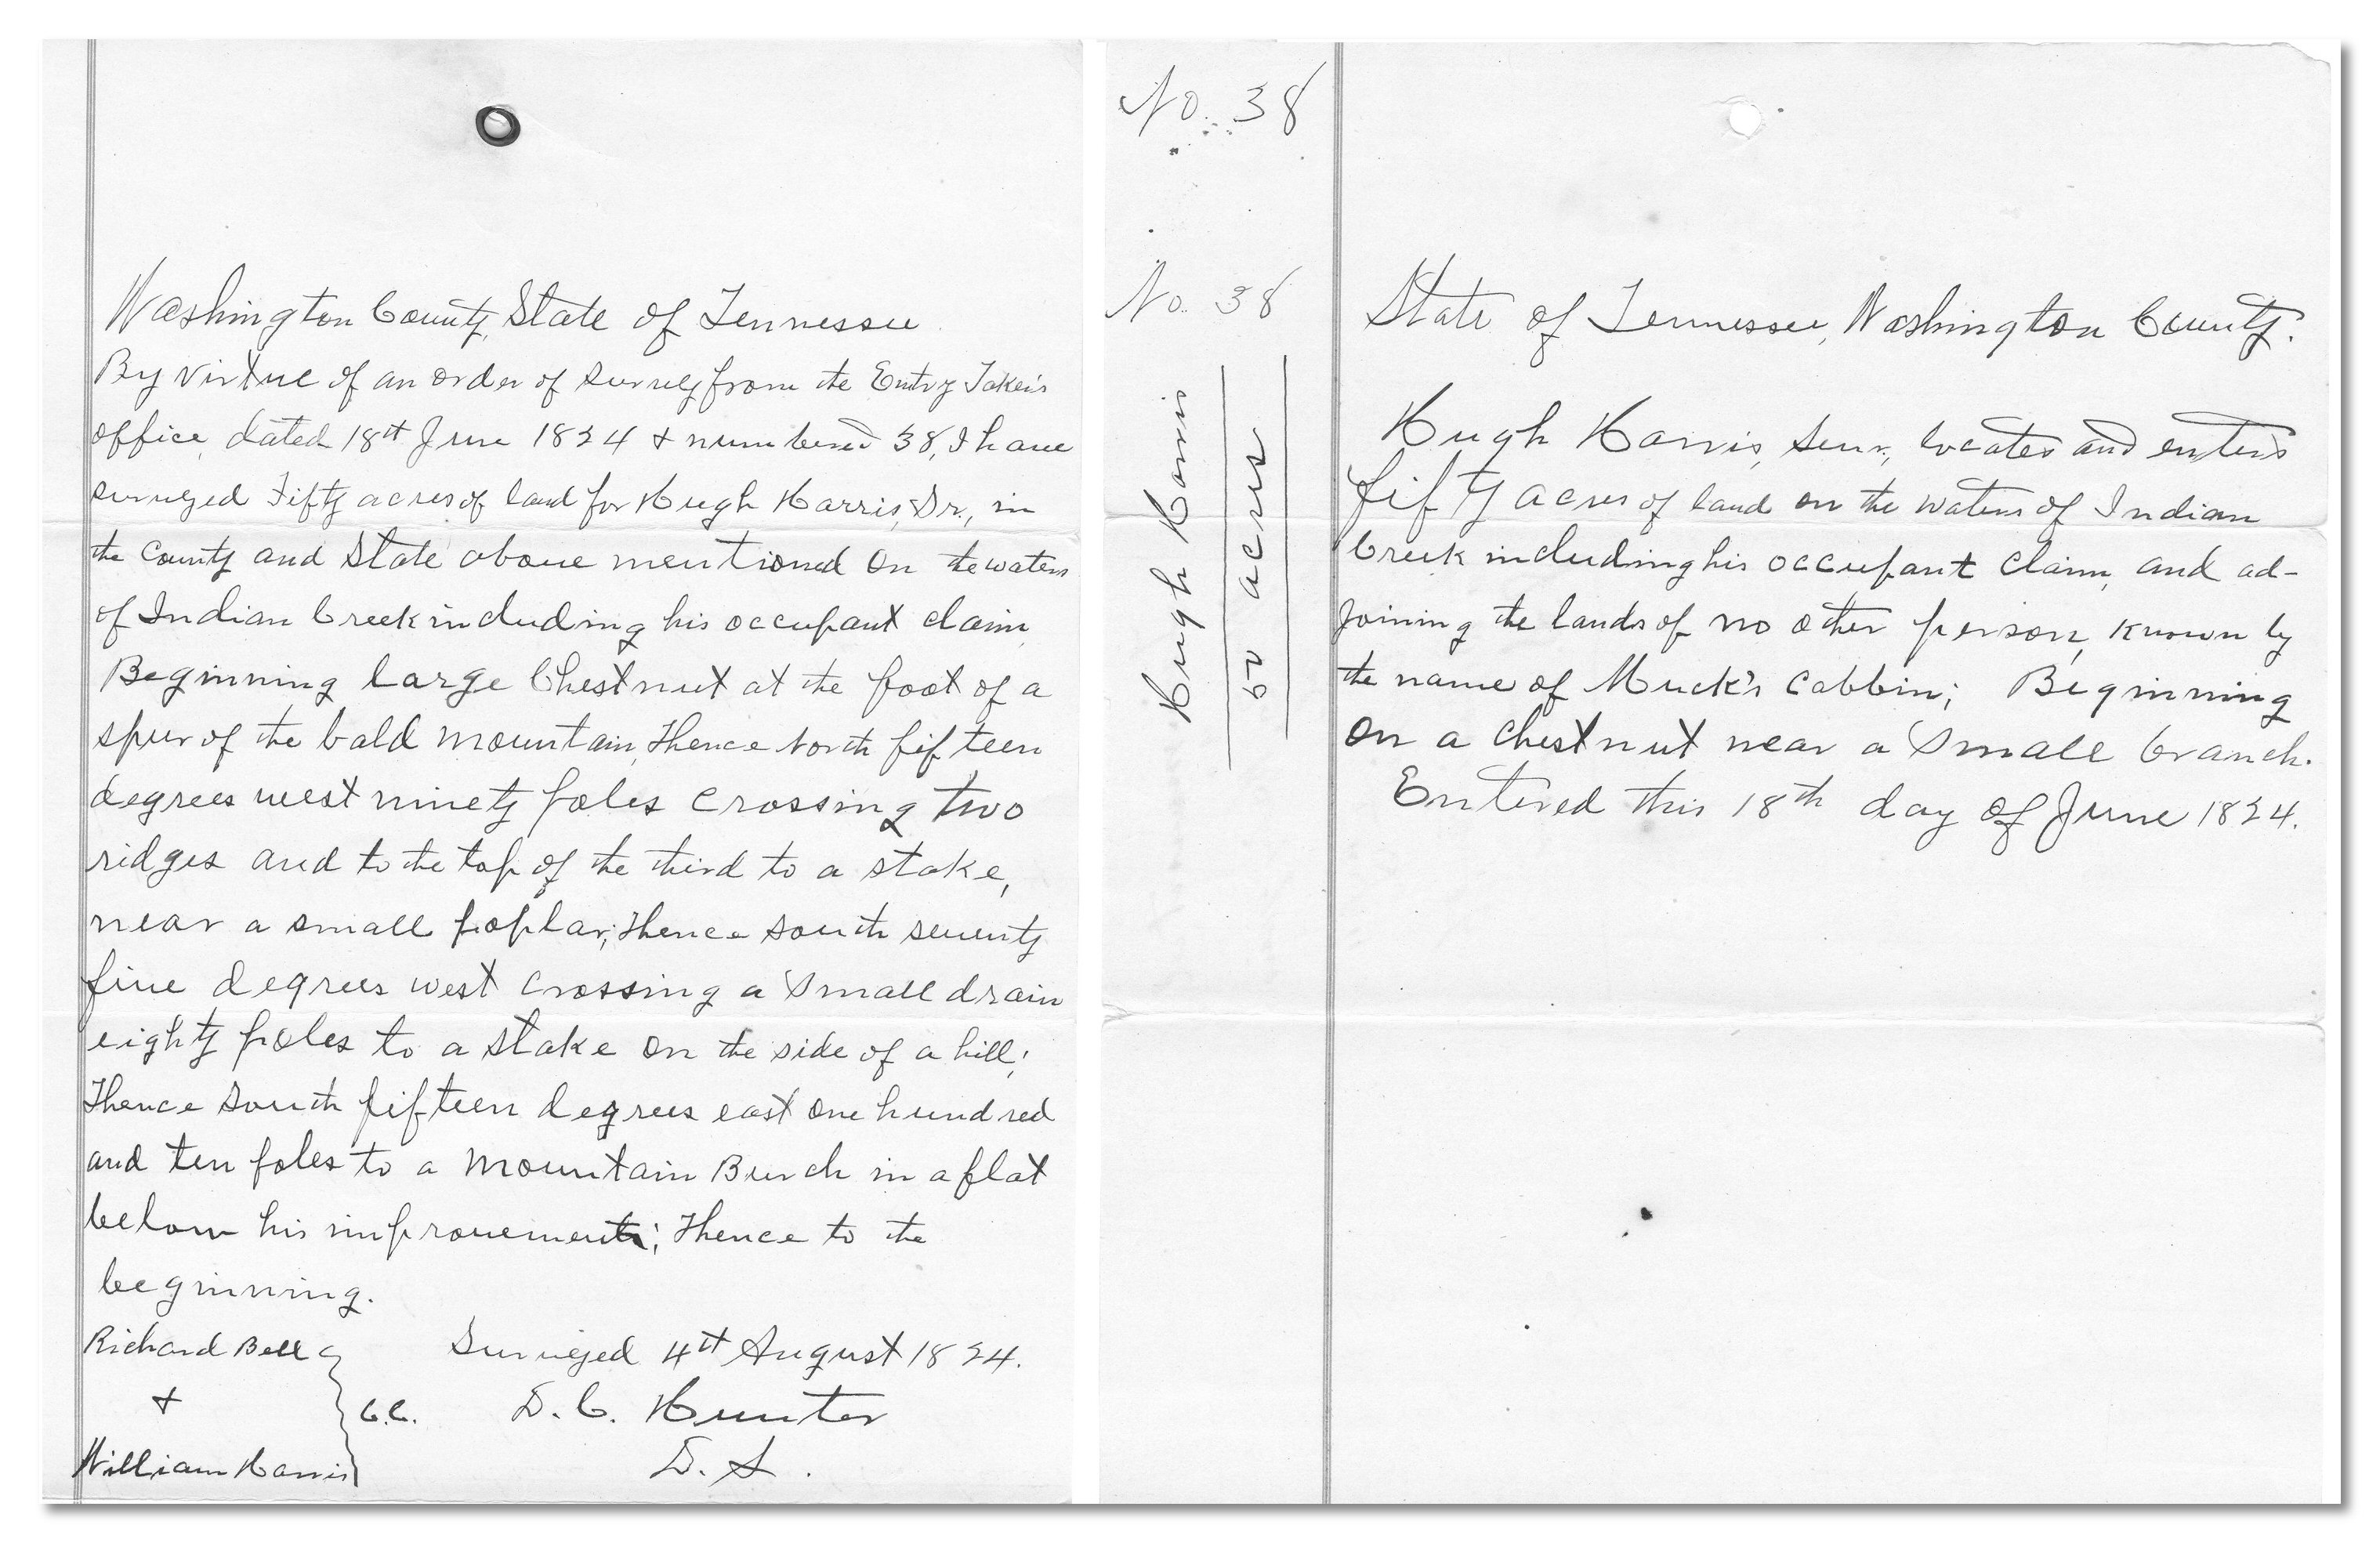 Washington County, State of Tennessee.
By virtue of an order of survey from the Entry Taker's
office, dated 18th June 1824 & numbered 38, I have
surveyed Fifty acres of land for Hugh Harris, Sr., in
the County and State above mentioned On the waters
of Indian Creek including his occupant claim,
Beginning large Chestnut at the foot of a
spur of the bald mountain, Thence North fifteen
degrees west ninety poles crossing two
ridges and to the top of the third to a stake,
near a small poplar; Thence south seventy
five degrees west crossing a small drain
eighty poles to a stake on the side of a hill;
Thence south fifteen degrees east one hundred
and ten poles to a Mountain Burch in a flat
below his improvements; Thence to the
beginning.
Richard Bell
&
William Harris
C.C.
Surveyed 4th August 1824.
D. C. Hunter
D. S.
No. 38
No. 38
Hugh Harris
50 acres
State of Tennessee, Washington County.
Hugh Harris, Senr., locates and enters
fifty acres of land on the waters of Indian
Creek including his occupant claim, and ad-
joining the lands of no other person, known by
the name of Muck's Cabbin; Beginning
on a chestnut near a small branch.
Entered this 18th day of June 1824.